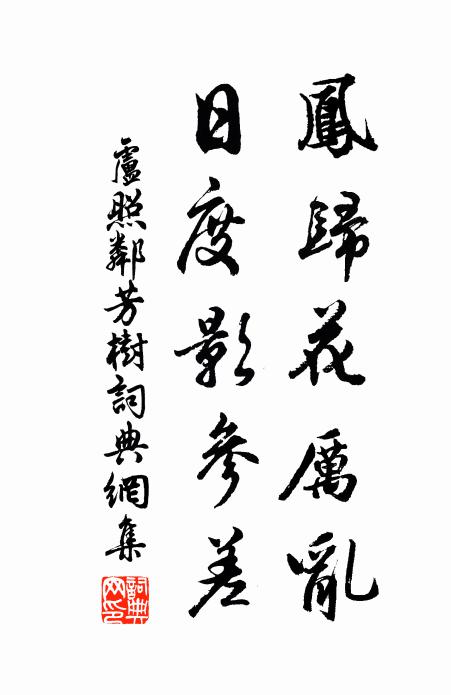 鳳歸花厲亂
日度影參差
盧照鄰芳樹詞典網集
詞典網印